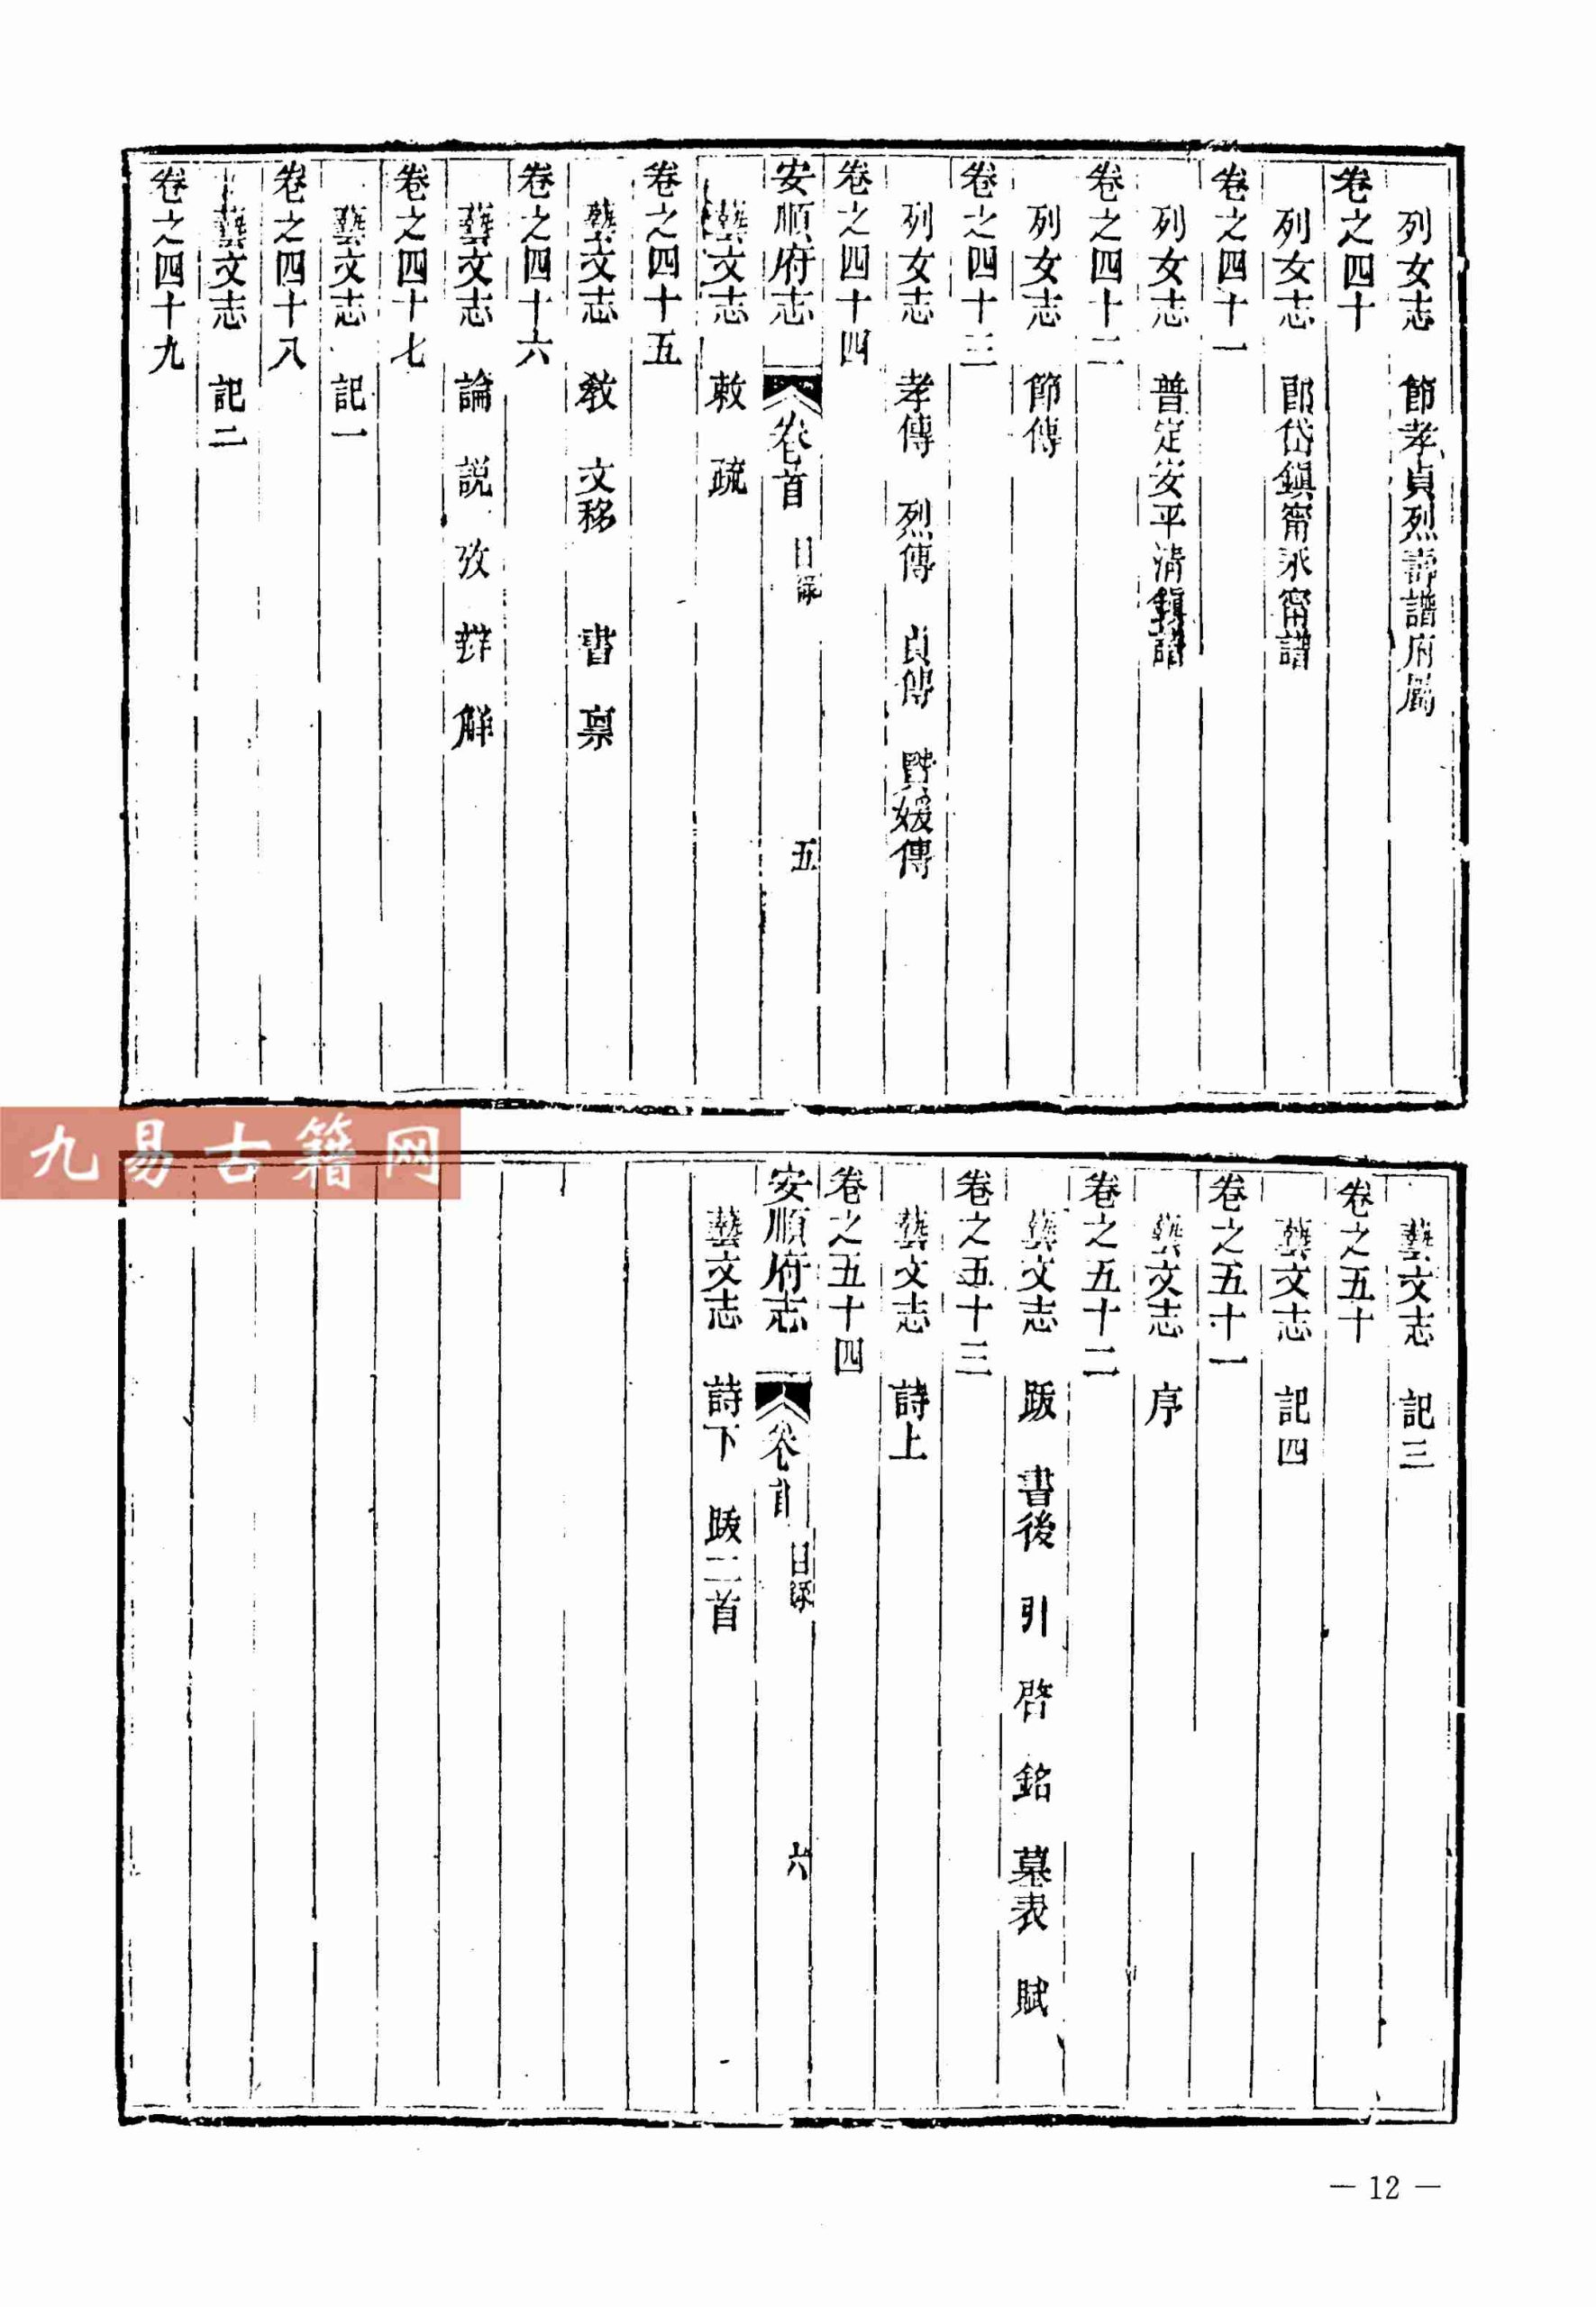 列女志　節孝貞烈壽譜府屬
卷之四十
列女志　郎岱鎮甯永甯譜
卷之四十一
列女志　普定安平清鎮譜
卷之四十二
列女志　節傳
卷之四十三
列女志　孝傳　烈傳　貞傳　賢媛傳
卷之四十四
安順府志　卷首　目錄　五
藝文志　敕　疏
卷之四十五
藝文志　教　文移　書　稟
卷之四十六
藝文志　論　說　攷　辨　解
卷之四十七
藝文志　記一
卷之四十八
藝文志　記二
卷之四十九
藝文志　記三
卷之五十
藝文志　記四
卷之五十一
藝文志　序
卷之五十二
藝文志　跋　書後　引　啓　銘　墓表　賦
卷之五十三
藝文志　詩上
卷之五十四
安順府志　卷首　目錄　六
藝文志　詩下　跋二首
九易古籍网
— 12 —